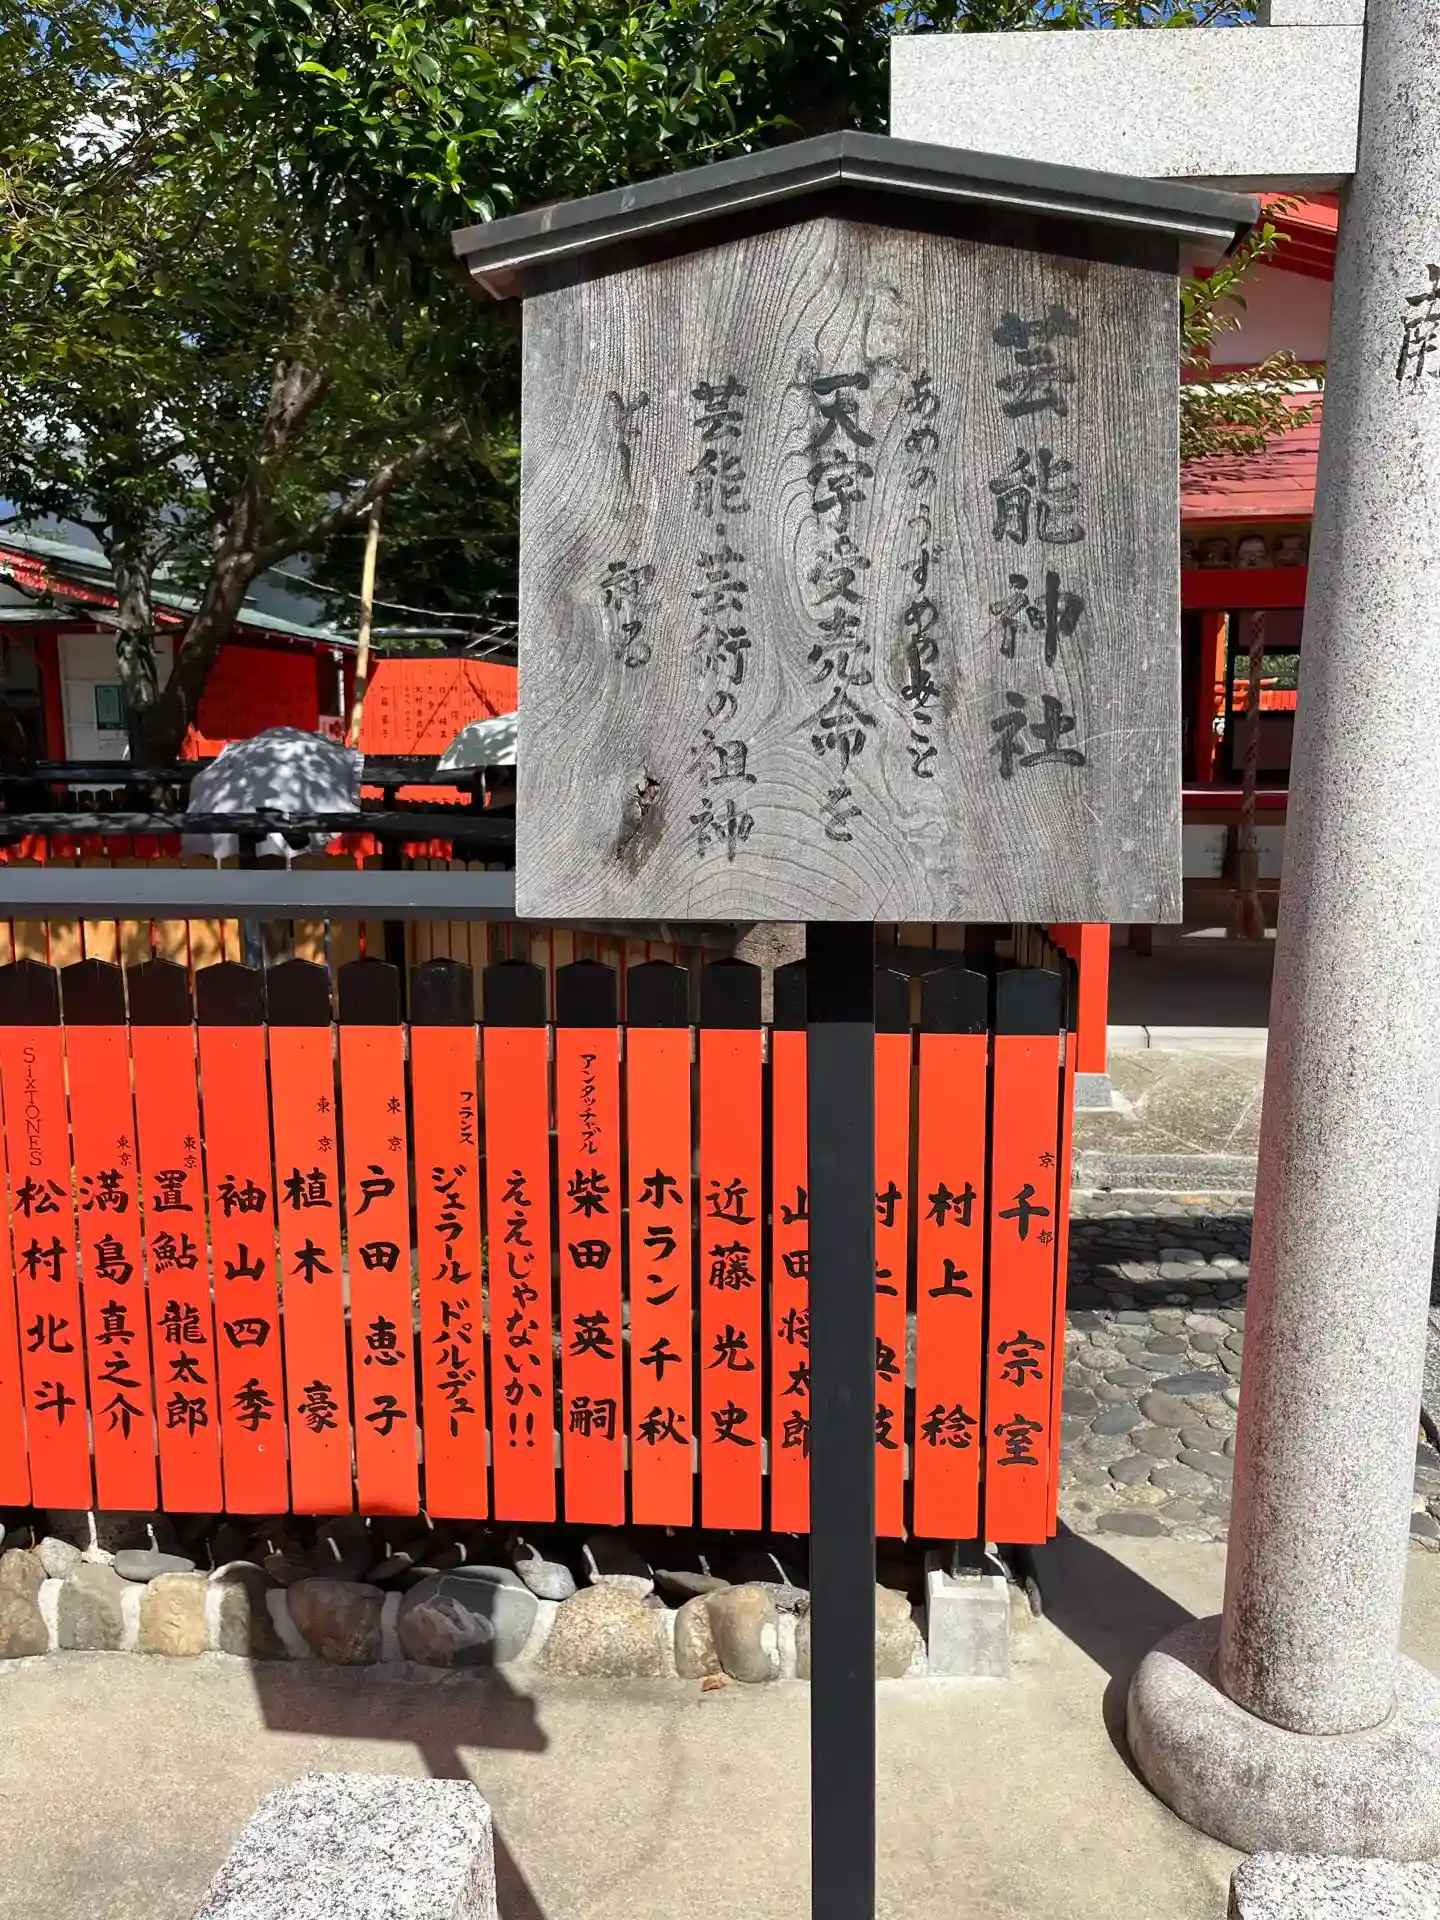 芸能神社
あめのうずめのみこと
天宇受売命を
芸能・芸術の祖神
として祀る
南
京都
千宗室
村上稔
近藤光史
ホラン千秋
アンタッチャブル
柴田英嗣
ええじゃないか!!
フランス
ジェラールドパルデュー
東京
戸田恵子
東京
植木豪
袖山四季
東京
置鮎龍太郎
東京
満島真之介
SixTONES
松村北斗